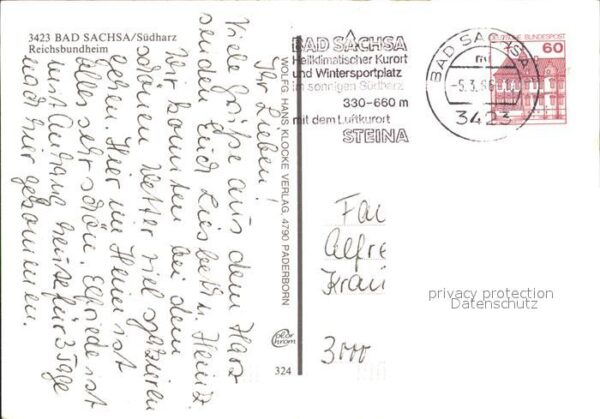 3423 BAD SACHSA/Südharz
Reichsbundheim
Ihr Lieben!
Viele Grüße aus dem Harz
senden Euch Liesbeth u. Heinz.
Wir konnten bei dem
schönen Wetter viel spazieren
gehen. Hier im Heim ist
alles sehr schön. Elfriede ist
mit Anhang heute für 3 Tage
nach hier gekommen.
WOLFG. HANS KLOCKE VERLAG, 4790 PADERBORN
color
chrom
324
BAD SACHSA
Heilklimatischer Kurort
und Wintersportplatz
im sonnigen Südharz
330-660 m
mit dem Luftkurort
STEINA
BAD SACHSA
m
-5.3.
3423
DEUTSCHE BUNDESPOST
60
Fa
Alfre
Krau
3000
privacy protection
Datenschutz